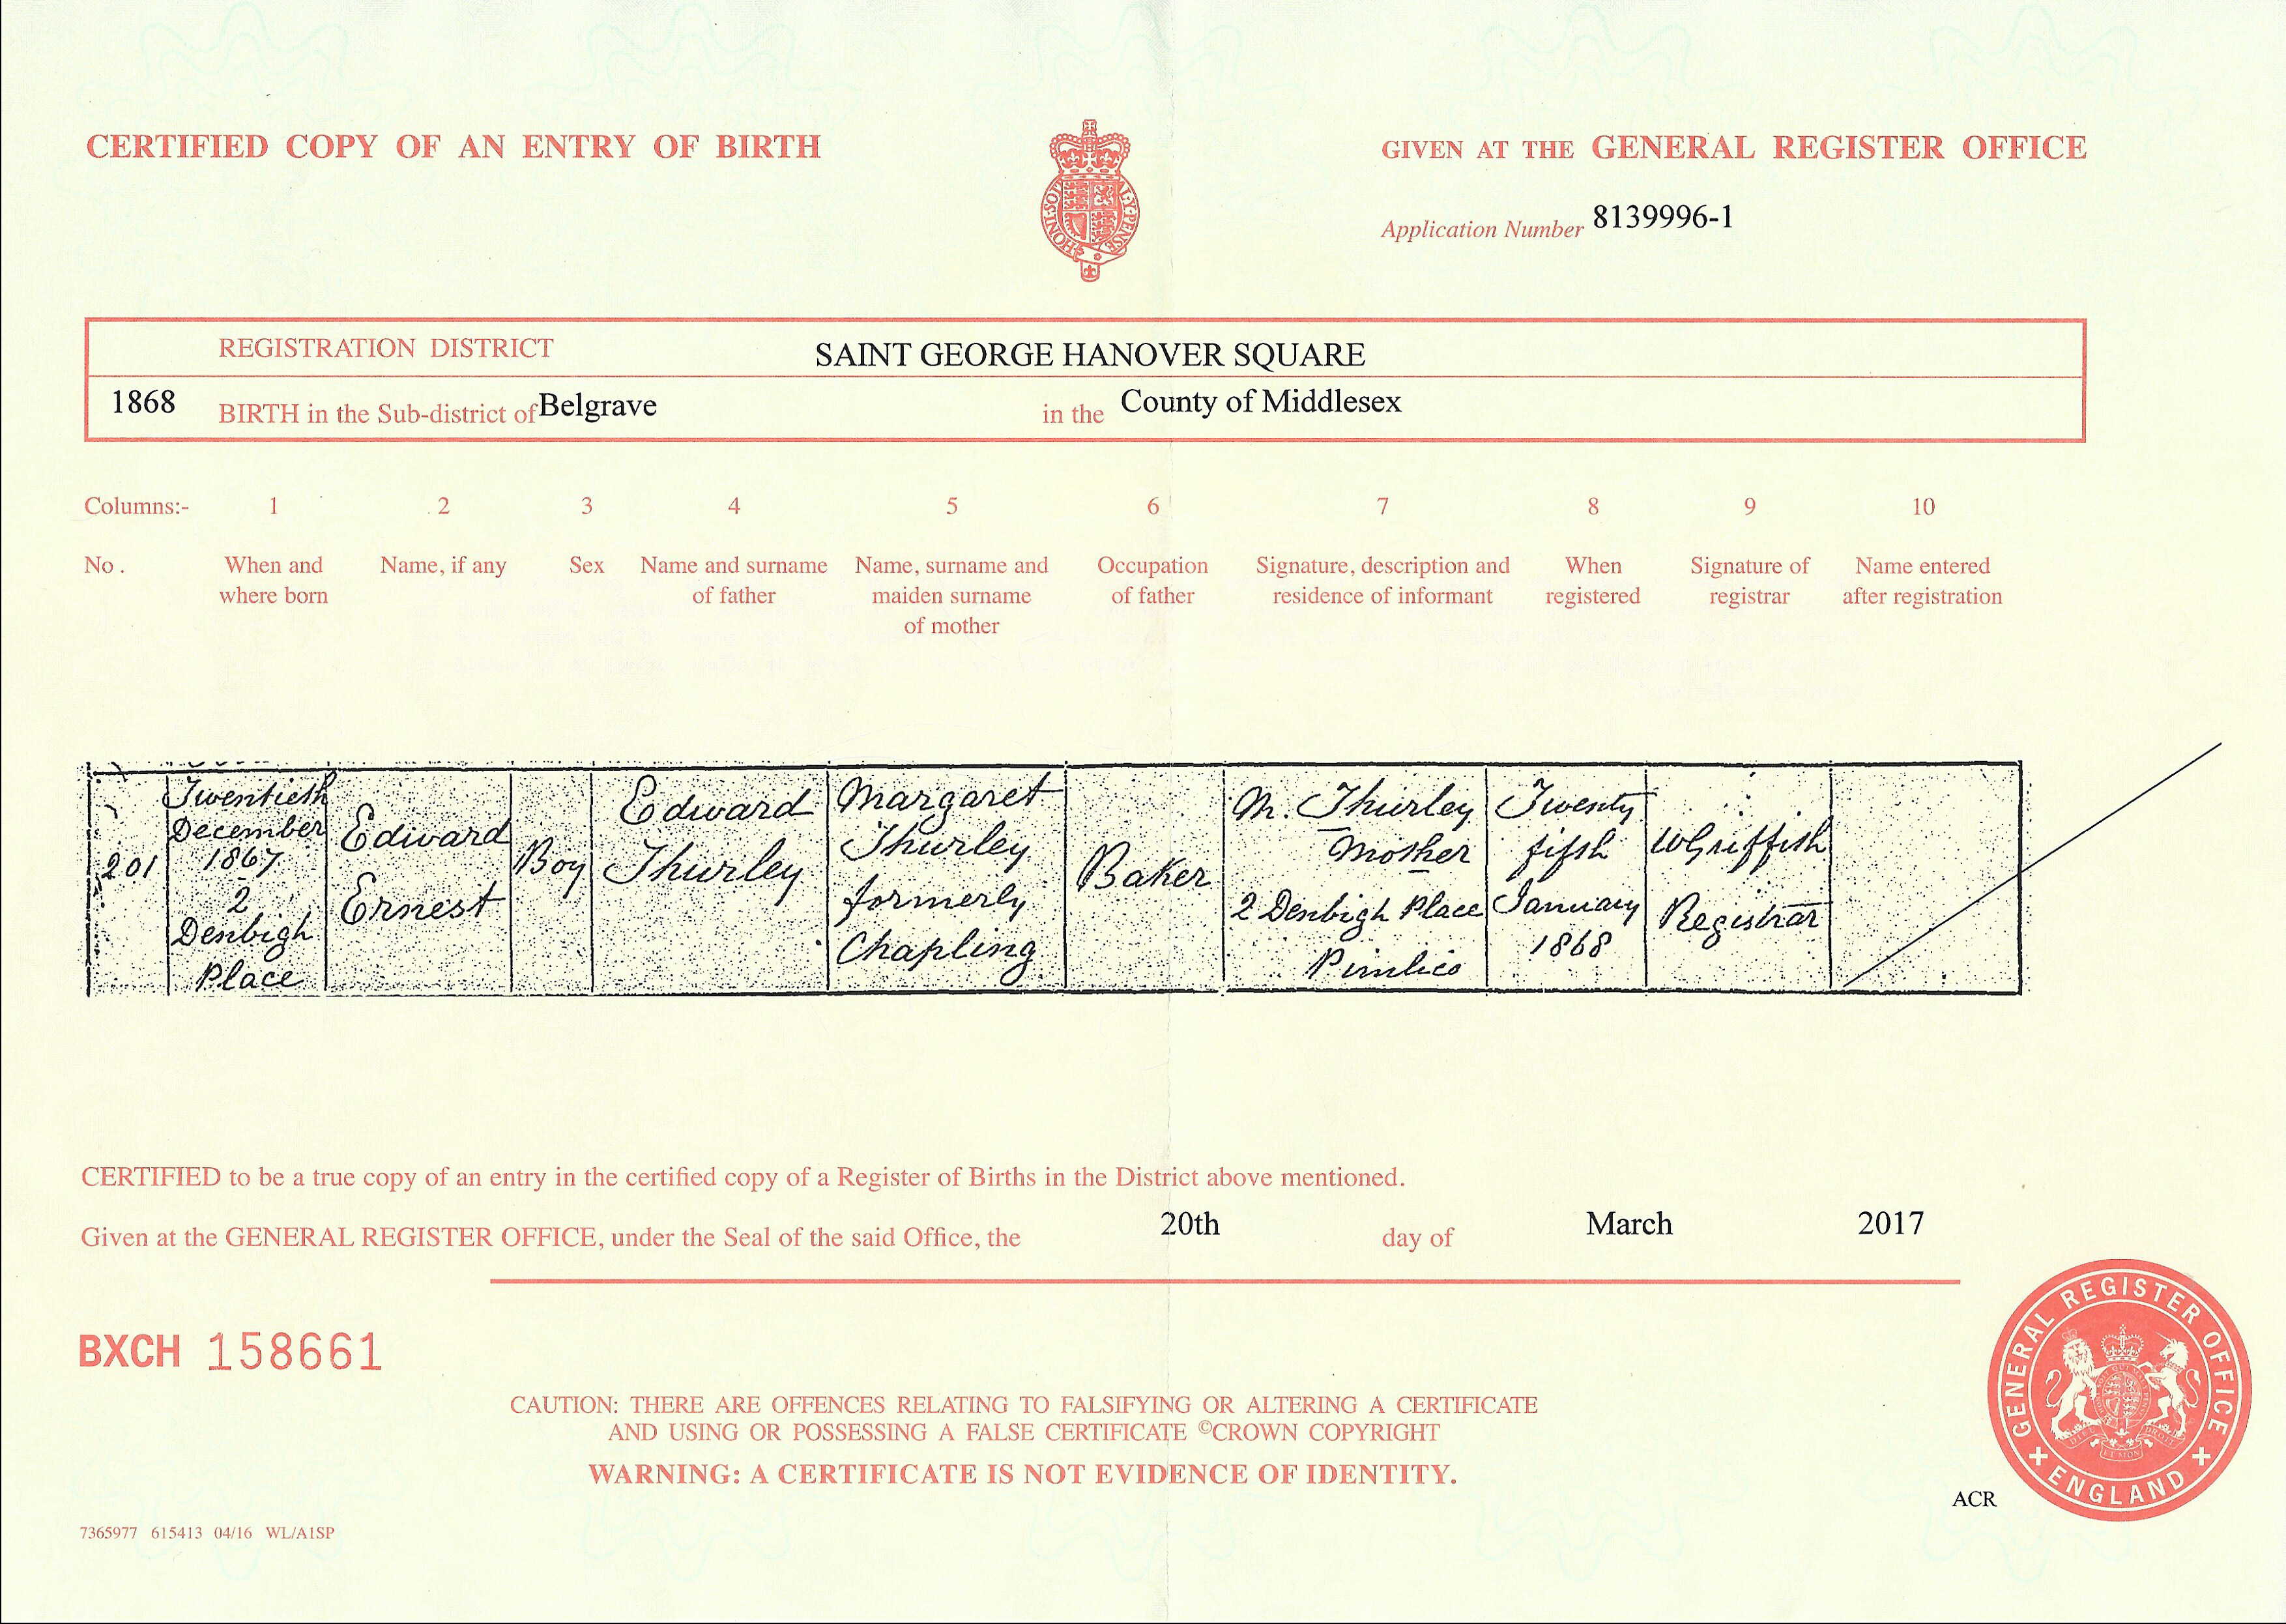 CERTIFIED COPY OF AN ENTRY OF BIRTH
GIVEN AT THE GENERAL REGISTER OFFICE
Application Number 8139996-1
REGISTRATION DISTRICT SAINT GEORGE HANOVER SQUARE
1868 BIRTH in the Sub-district of Belgrave in the County of Middlesex
Columns:- 1 2 3 4 5 6 7 8 9 10
No. When and where born
Name, if any
Sex
Name and surname of father
Name, surname and maiden surname of mother
Occupation of father
Signature, description and residence of informant
When registered
Signature of registrar
Name entered after registration
201
Twentieth
December
1867
2
Denbigh
Place
Edward
Ernest
Boy
Edward
Thurley
Margaret
Thurley
formerly
Chapling
Baker
M. Thurley
Mother
2 Denbigh Place
Pimlico
Twenty
fifth
January
1868
W Griffith
Registrar
CERTIFIED to be a true copy of an entry in the certified copy of a Register of Births in the District above mentioned.
Given at the GENERAL REGISTER OFFICE, under the Seal of the said Office, the 20th day of March 2017
BXCH 158661
CAUTION: THERE ARE OFFENCES RELATING TO FALSIFYING OR ALTERING A CERTIFICATE
AND USING OR POSSESSING A FALSE CERTIFICATE ©CROWN COPYRIGHT
WARNING: A CERTIFICATE IS NOT EVIDENCE OF IDENTITY.
GENERAL REGISTER OFFICE
ENGLAND
ACR
7365977 615413 04/16 WL/A1SP